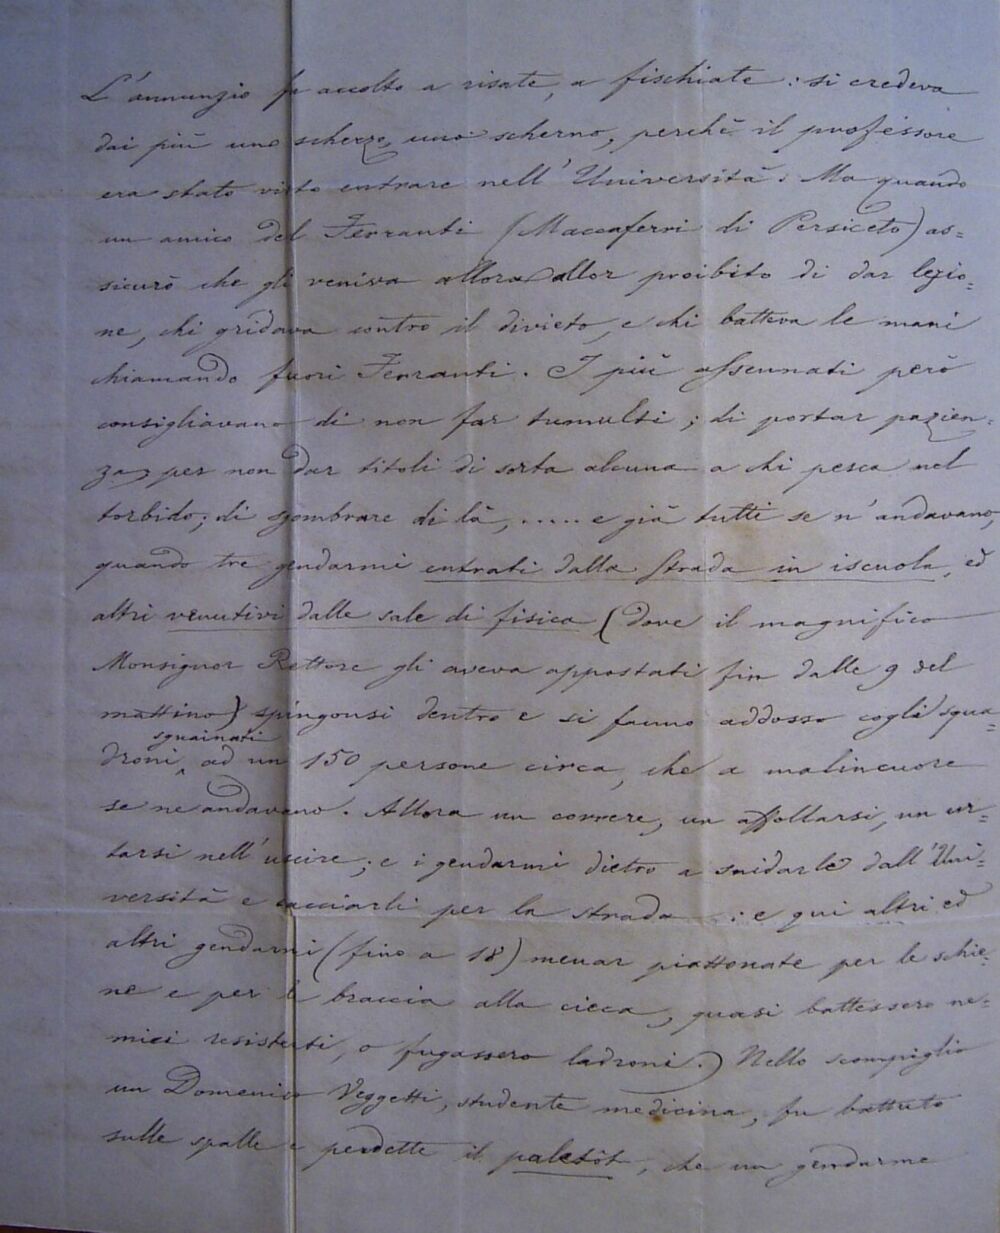 L'annunzio fu accolto a risate, a fischiate: si credeva
dai più uno scherzo, uno scherno, perchè il professore
era stato visto entrare nell'Università. Ma quando
un amico del Ferranti (Maccaferri di Persiceto) as=
sicurò che gli veniva allora allor proibito di dar lezio=
ne, chi gridava contro il divieto, e chi batteva le mani
chiamando fuori Ferranti. I più assennati però
consigliavano di non far tumulti; di portar pazien=
za, per non dar titoli di sorta alcuna a chi pesca nel
torbido; di sgombrare di là, ..... e già tutti se n'andavano,
quando tre gendarmi entrati dalla strada in iscuola, ed
altri venutivi dalle sale di fisica (dove il magnifico
Monsignor Rettore gli aveva appostati fin dalle 9 del
mattino) spingonsi dentro e si fanno addosso cogli squa=
sguainati
droni ad un 150 persone circa, che a malincuore
se ne andavano. Allora un correre, un affollarsi, un ur=
tarsi nell'uscire; e i gendarmi dietro a snidarle dall'Uni=
versità e cacciarli per la strada: e qui altri ed
altri gendarmi (fino a 18) menar piattonate per le schie=
ne e per le braccia alla cieca, quasi battessero ne=
mici resistenti, o fugassero ladroni. Nello scompiglio
un Domenico Veggetti, studente medicina, fu battuto
sulle spalle e perdette il paletôt, che un gendarme